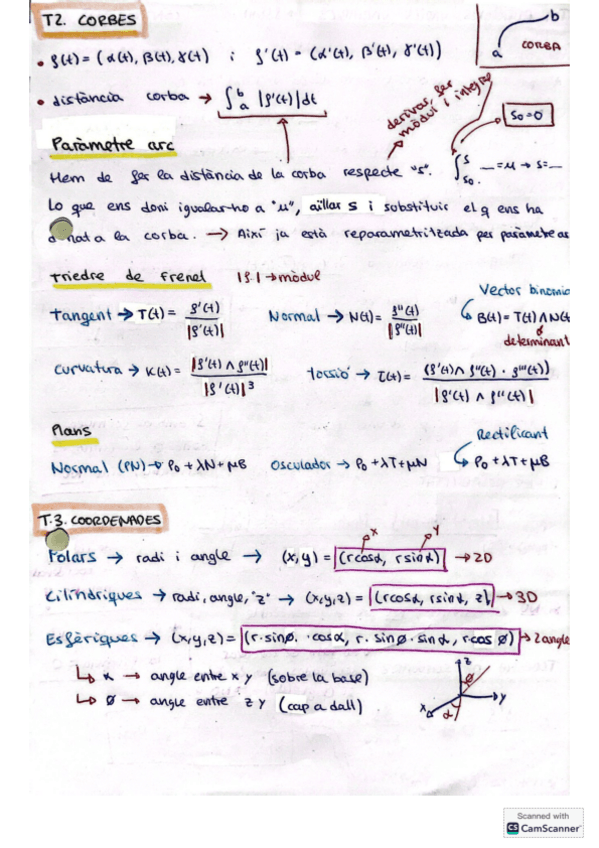 T2. CORBES
b
a
CORBA
• ρ(t) = (α(t), β(t), γ(t) i ρ'(t) = (α'(t), β'(t), γ'(t))
• distància corba → ∫ₐᵇ |ρ'(t)|dt
derivar, fer mòdul i integrar
S₀=0
Paràmetre arc
Hem de fer la distància de la corba respecte "s". ∫ₛ₀ˢ __ = μ → s = __
Lo que ens doni igualar-ho a "μ", aïllar s i substituir el q ens ha
donat a la corba. → Així ja està reparametritzada per paràmetre arc
Triedre de Frenet |ρ| → mòdul
Vector binomia
Tangent → T(t) = ρ'(t) / |ρ'(t)| Normal → N(t) = ρ''(t) / |ρ''(t)| B(t) = T(t) ∧ N(t
determinant
Curvatura → K(t) = |ρ'(t) ∧ ρ''(t)| / |ρ'(t)|³ torsió → τ(t) = (ρ'(t) ∧ ρ''(t) · ρ'''(t)) / |ρ'(t) ∧ ρ''(t)|
Plans
Rectificant
Normal (PN) → P₀ + λN + μB Osculador → P₀ + λT + μN P₀ + λT + μB
T.3. COORDENADES
x y
Polars → radi i angle → (x,y) = (rcosα, rsinα) → 2D
Cilíndriques → radi, angle, "z" → (x,y,z) = (rcosα, rsinα, z) → 3D
Esfèriques → (x,y,z) = (r·sinø · cosα, r·sinø·sinα, rcosø) → 2 angle
α → angle entre x y (sobre la base)
ø → angle entre z y (cap a dall)
z
ø
y
x
α
Scanned with
CS CamScanner